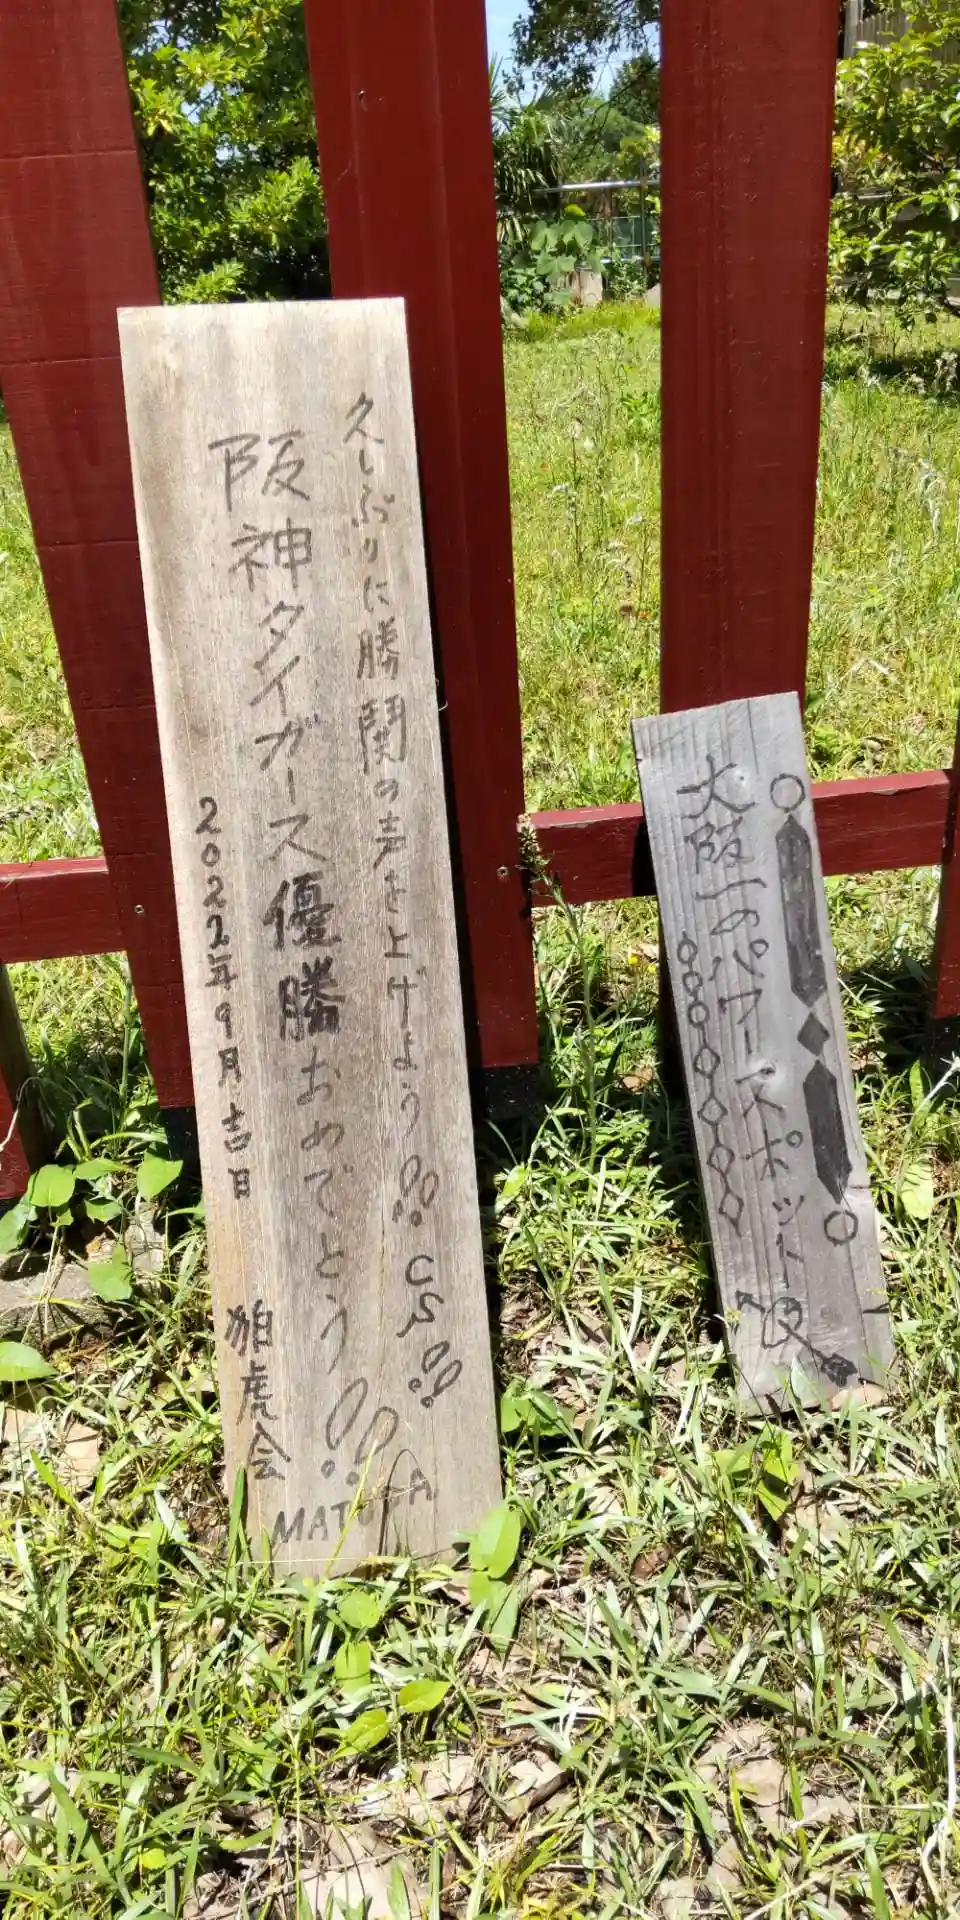 久しぶりに勝鬨の声を上げよう!!CS!!
阪神タイガース優勝おめでとう!!
2022年9月吉日 狛虎会
大阪一のパワースポット